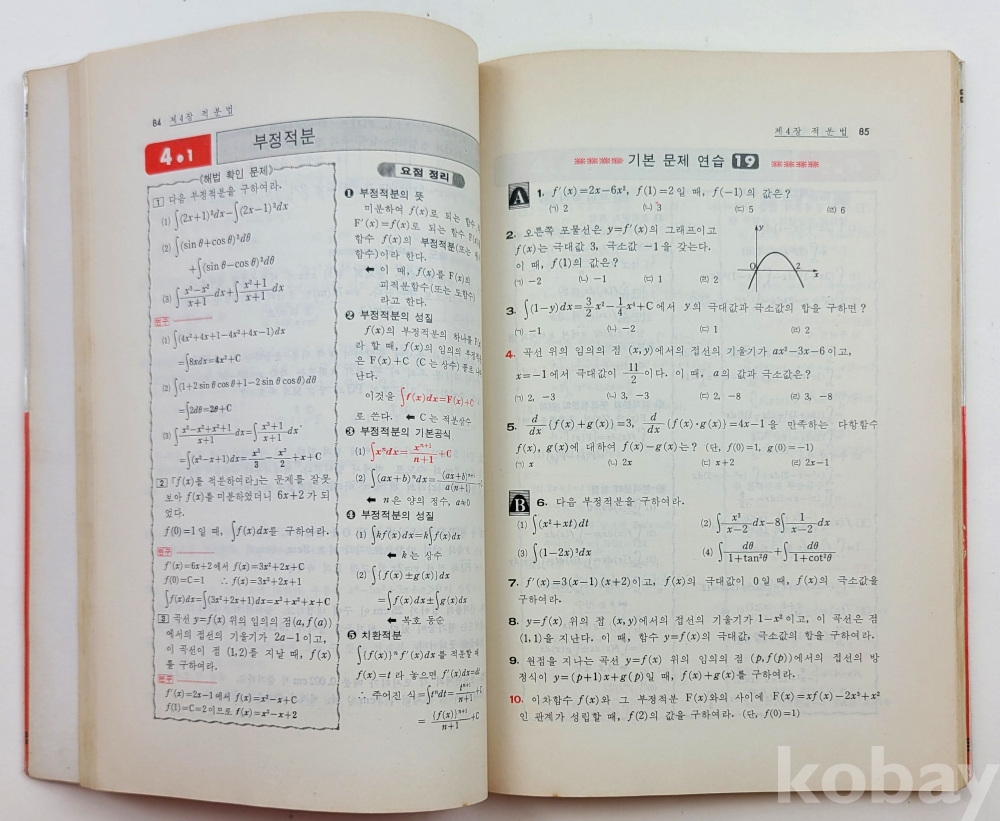 84 제4장 적분법
4·1 부정적분
《해법 확인 문제》
1 다음 부정적분을 구하여라.
(1) ∫(2x+1)²dx−∫(2x−1)²dx
(2) ∫(sinθ+cosθ)²dθ
+∫(sinθ−cosθ)²dθ
(3) ∫(x³−x²)/(x+1)dx+∫(x²+1)/(x+1)dx
(1) ∫(4x²+4x+1−4x²+4x−1)dx
=∫8xdx=4x²+C
(2) ∫(1+2sinθcosθ+1−2sinθcosθ)dθ
=∫2dθ=2θ+C
(3) ∫(x³−x²+x²+1)/(x+1)dx=∫(x³+1)/(x+1)dx
=∫(x²−x+1)dx=x³/3−x²/2+x+C
2 「f(x)를 적분하여라」는 문제를 잘못
보아 f(x)를 미분하였더니 6x+2가 되
었다.
f(0)=1일 때, ∫f(x)dx를 구하여라.
f′(x)=6x+2에서 f(x)=3x²+2x+C
f(0)=C=1 ∴ f(x)=3x²+2x+1
∫f(x)dx=∫(3x²+2x+1)dx=x³+x²+x+C
3 곡선 y=f(x) 위의 임의의 점(a, f(a))
에서의 접선의 기울기가 2a−1이고,
이 곡선이 점 (1,2)를 지날 때, f(x)
를 구하여라.
f′(x)=2x−1에서 f(x)=x²−x+C
f(1)=C=2이므로 f(x)=x²−x+2
요점 정리
❶ 부정적분의 뜻
미분하여 f(x)로 되는 함수,
F′(x)=f(x)로 되는 함수 F(x)
함수 f(x)의 부정적분(또는
함수)이라 한다.
← 이 때, f(x)를 F(x)의
피적분함수(또는 도함수)
라고 한다.
❷ 부정적분의 성질
f(x)의 부정적분의 하나를 F(x)
라 할 때, f(x)의 임의의 부정적분
은 F(x)+C (C는 상수) 꼴로
난다.
이것을 ∫f(x)dx=F(x)+C
로 쓴다. ← C는 적분상수
❸ 부정적분의 기본공식
(1) ∫xⁿdx=xⁿ⁺¹/(n+1)+C
(2) ∫(ax+b)ⁿdx=(ax+b)ⁿ⁺¹/a(n+1)+C
← n은 양의 정수, a≠0
❹ 부정적분의 성질
(1) ∫kf(x)dx=k∫f(x)dx
← k는 상수
(2) ∫{f(x)±g(x)}dx
=∫f(x)dx±∫g(x)dx
← 복호 동순
❺ 치환적분
∫{f(x)}ⁿf′(x)dx를 적분할 때
f(x)=t라 놓으면 f′(x)dx=dt
∴ 주어진 식=∫tⁿdt=tⁿ⁺¹/(n+1)+C
={f(x)}ⁿ⁺¹/(n+1)+C
제4장 적분법 85
기본 문제 연습 19
A 1. f′(x)=2x−6x², f(1)=2일 때, f(−1)의 값은?
(ㄱ) 2 (ㄴ) 3 (ㄷ) 5 (ㄹ) 6
2. 오른쪽 포물선은 y=f′(x)의 그래프이고
f(x)는 극대값 3, 극소값 −1을 갖는다.
이 때, f(1)의 값은?
(ㄱ) −2 (ㄴ) −1 (ㄷ) 1 (ㄹ) 2
y
O 2 x
3. ∫(1−y)dx=3/2x²−1/4x⁴+C에서 y의 극대값과 극소값의 합을 구하면?
(ㄱ) −1 (ㄴ) −2 (ㄷ) 1 (ㄹ) 2
4. 곡선 위의 임의의 점 (x,y)에서의 접선의 기울기가 ax²−3x−6이고,
x=−1에서 극대값이 11/2이다. 이 때, a의 값과 극소값은?
(ㄱ) 2, −3 (ㄴ) 3, −3 (ㄷ) 2, −8 (ㄹ) 3, −8
5. d/dx{f(x)+g(x)}=3, d/dx{f(x)·g(x)}=4x−1을 만족하는 다항함수
f(x), g(x)에 대하여 f(x)−g(x)는? (단, f(0)=1, g(0)=−1)
(ㄱ) x (ㄴ) 2x (ㄷ) x+2 (ㄹ) 2x−1
B 6. 다음 부정적분을 구하여라.
(1) ∫(x²+xt)dt (2) ∫x³/(x−2)dx−8∫1/(x−2)dx
(3) ∫(1−2x)³dx (4) ∫dθ/(1+tan²θ)+∫dθ/(1+cot²θ)
7. f′(x)=3(x−1)(x+2)이고, f(x)의 극대값이 0일 때, f(x)의 극소값을
구하여라.
8. y=f(x) 위의 점 (x,y)에서의 접선의 기울기가 1−x²이고, 이 곡선은 점
(1,1)을 지난다. 이 때, 함수 y=f(x)의 극대값, 극소값의 합을 구하여라.
9. 원점을 지나는 곡선 y=f(x) 위의 임의의 점 (p,f(p))에서의 접선의 방
정식이 y=(p+1)x+g(p)일 때, f(x)+g(x)를 구하여라.
10. 이차함수 f(x)와 그 부정적분 F(x)와의 사이에 F(x)=xf(x)−2x³+x²
인 관계가 성립할 때, f(2)의 값을 구하여라. (단, f(0)=1)
kobay